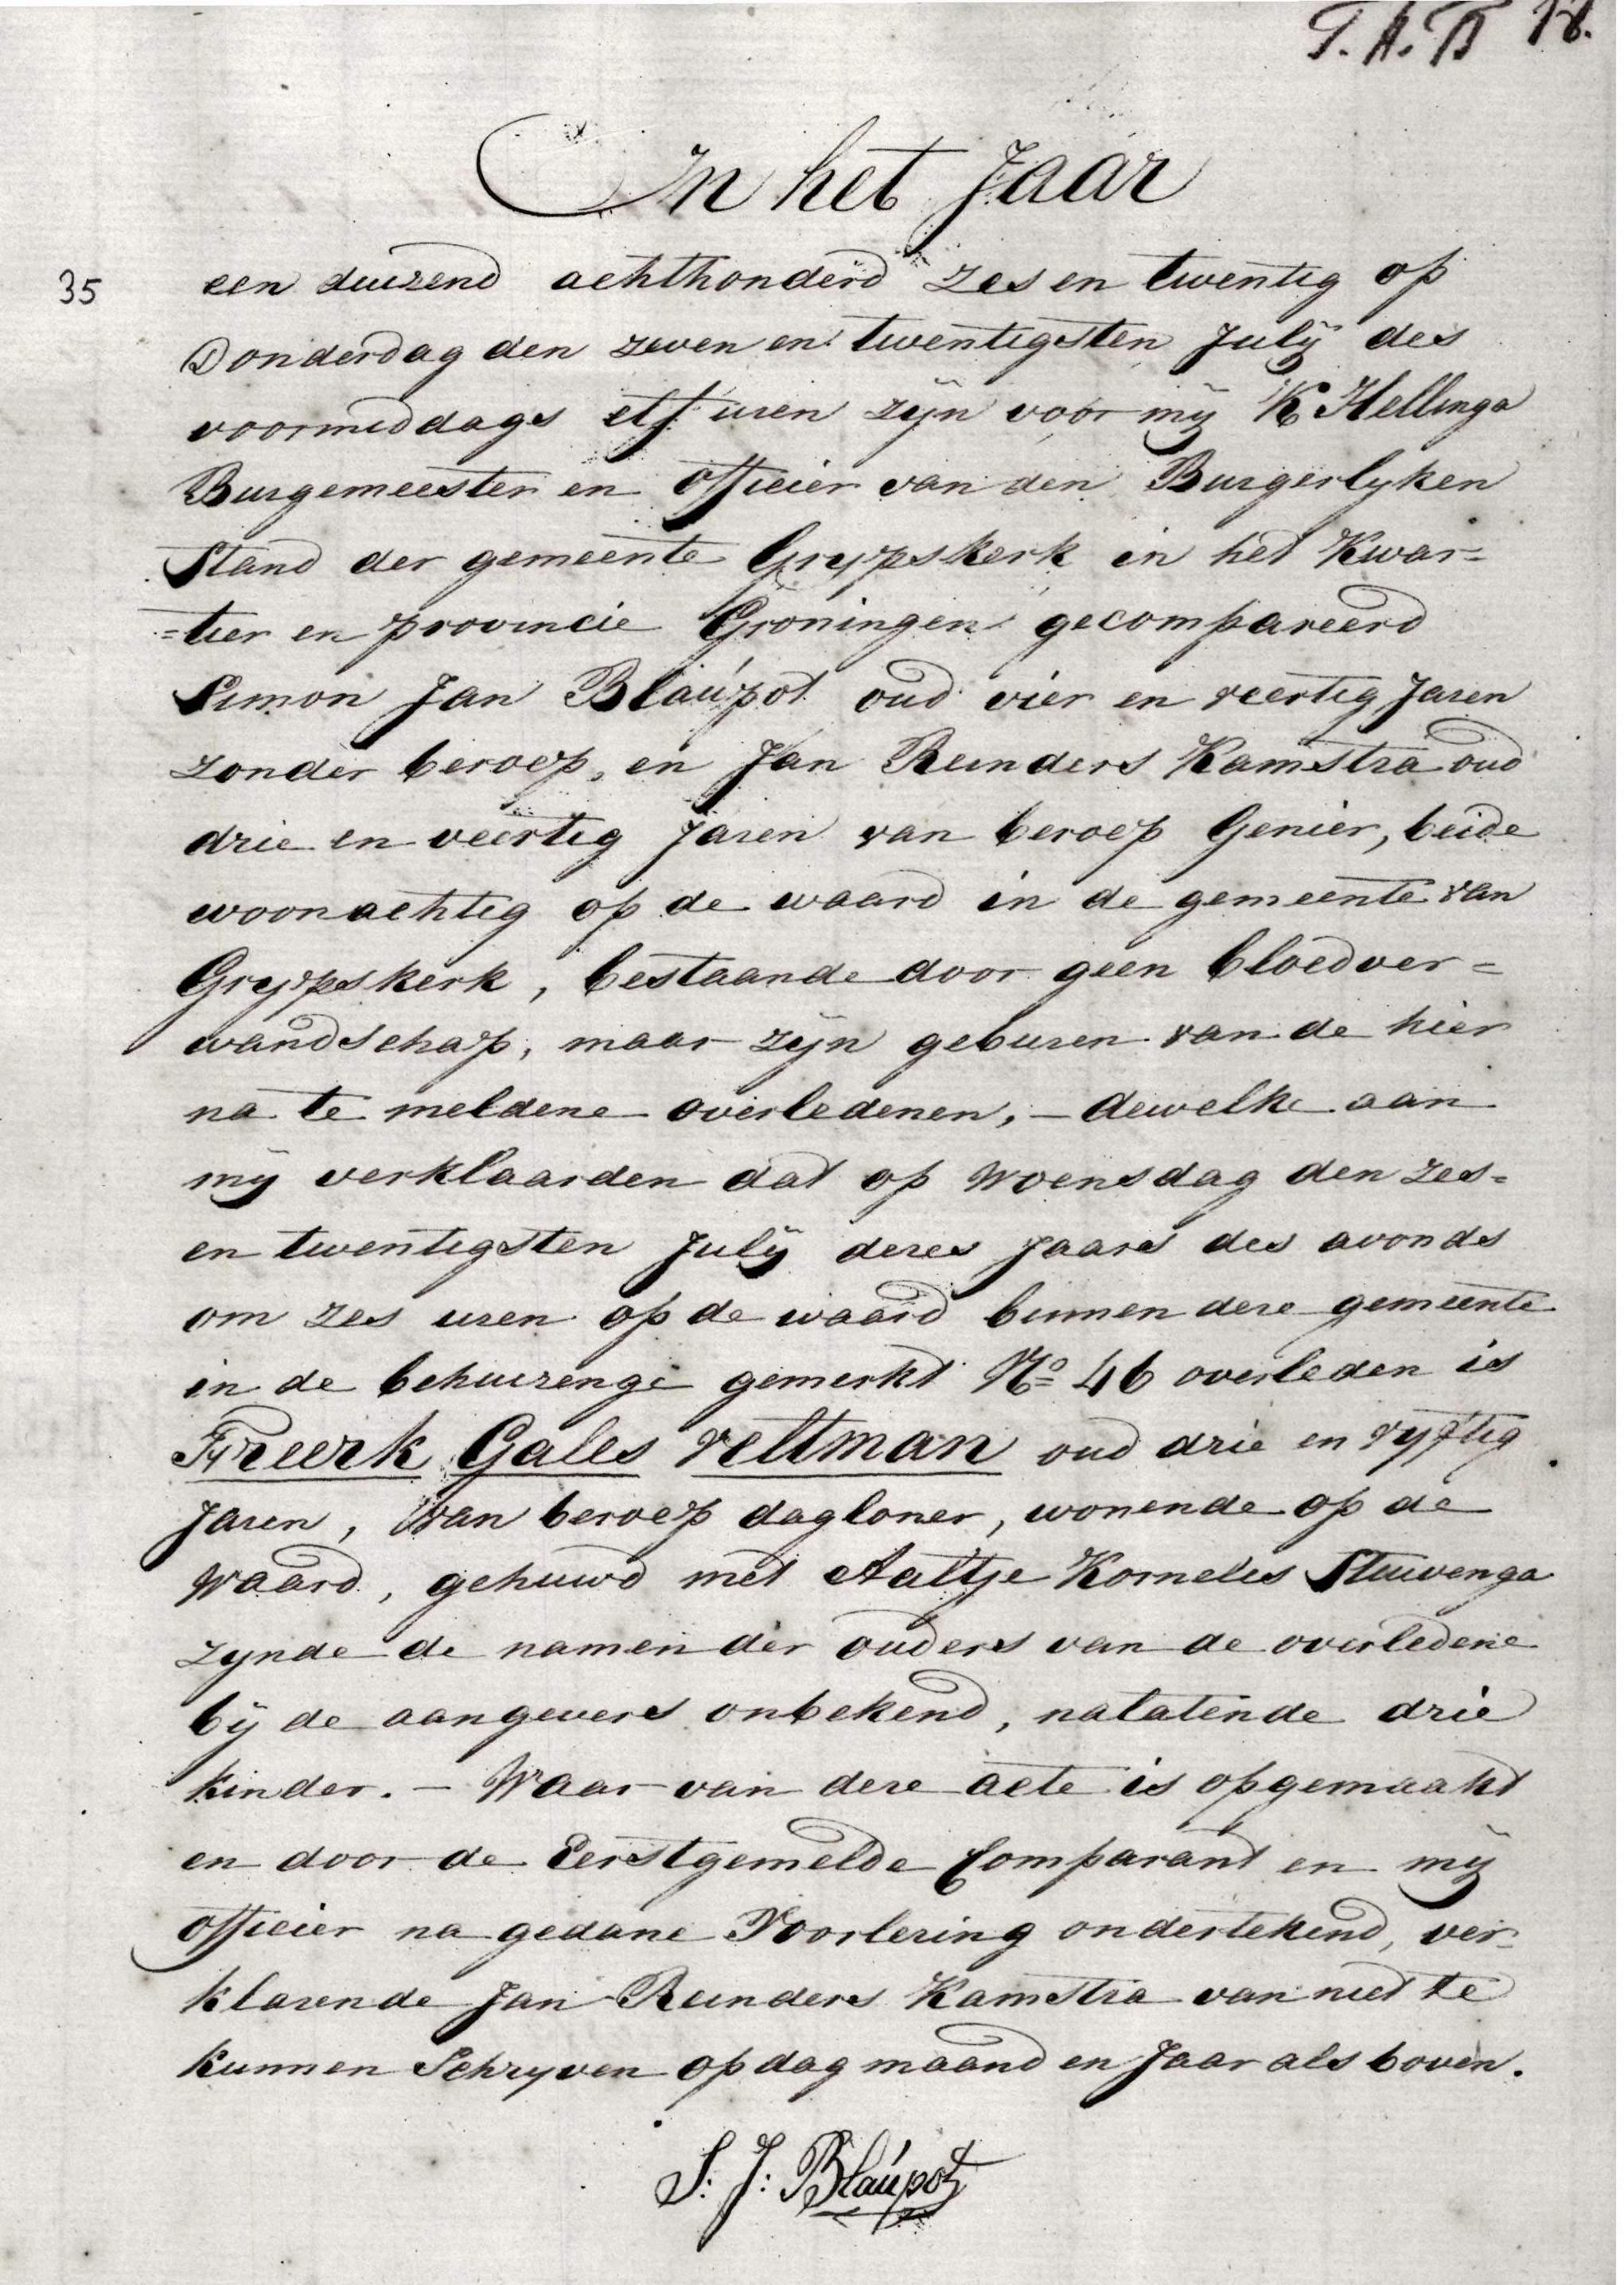 In het Jaar
35 een duizend achthonderd zes en twentig op
Donderdag den zeven en twentigsten July des
voormiddags elf uren zijn voor mij K Hellinga
Burgemeester en Officier van den Burgerlyken
Stand der gemeente Grypskerk in het Kwar=
=tier en provincie Groningen gecompareerd
Simon Jan Blaúpot oud vier en veertig Jaren
zonder beroep, en Jan Reinders Kamstra oud
drie en veertig Jaren van beroep Genier, beide
woonachtig op de waard in de gemeente van
Grypskerk, bestaande door geen bloedver=
wandschap, maar zijn geburen van de hier
na te meldene overledenen, - dewelke aan
mij verklaarden dat op Woensdag den zes=
en twentigsten July dezes Jaars des avonds
om zes uren op de waard binnen deze gemeente
in de behuizenge gemerkt No 46 overleden is
Freerk Gales Veltman oud drie en vyftig
Jaren, van beroep dagloner, wonende op de
Waard, gehuwd met Aaltje Kornelis Stuivenga
zynde de namen der ouders van de overledene
bij de aangevers onbekend, nalatende drie
kinder. - Waar van deze acte is opgemaakt
en door de Eerstgemelde Comparant en mij
officier na gedane Voorlezing ondertekend, ver=
klarende Jan Reinders Kamstra van niet te
kunnen Schryven op dag maand en Jaar als boven.
S: J: Blaúpot